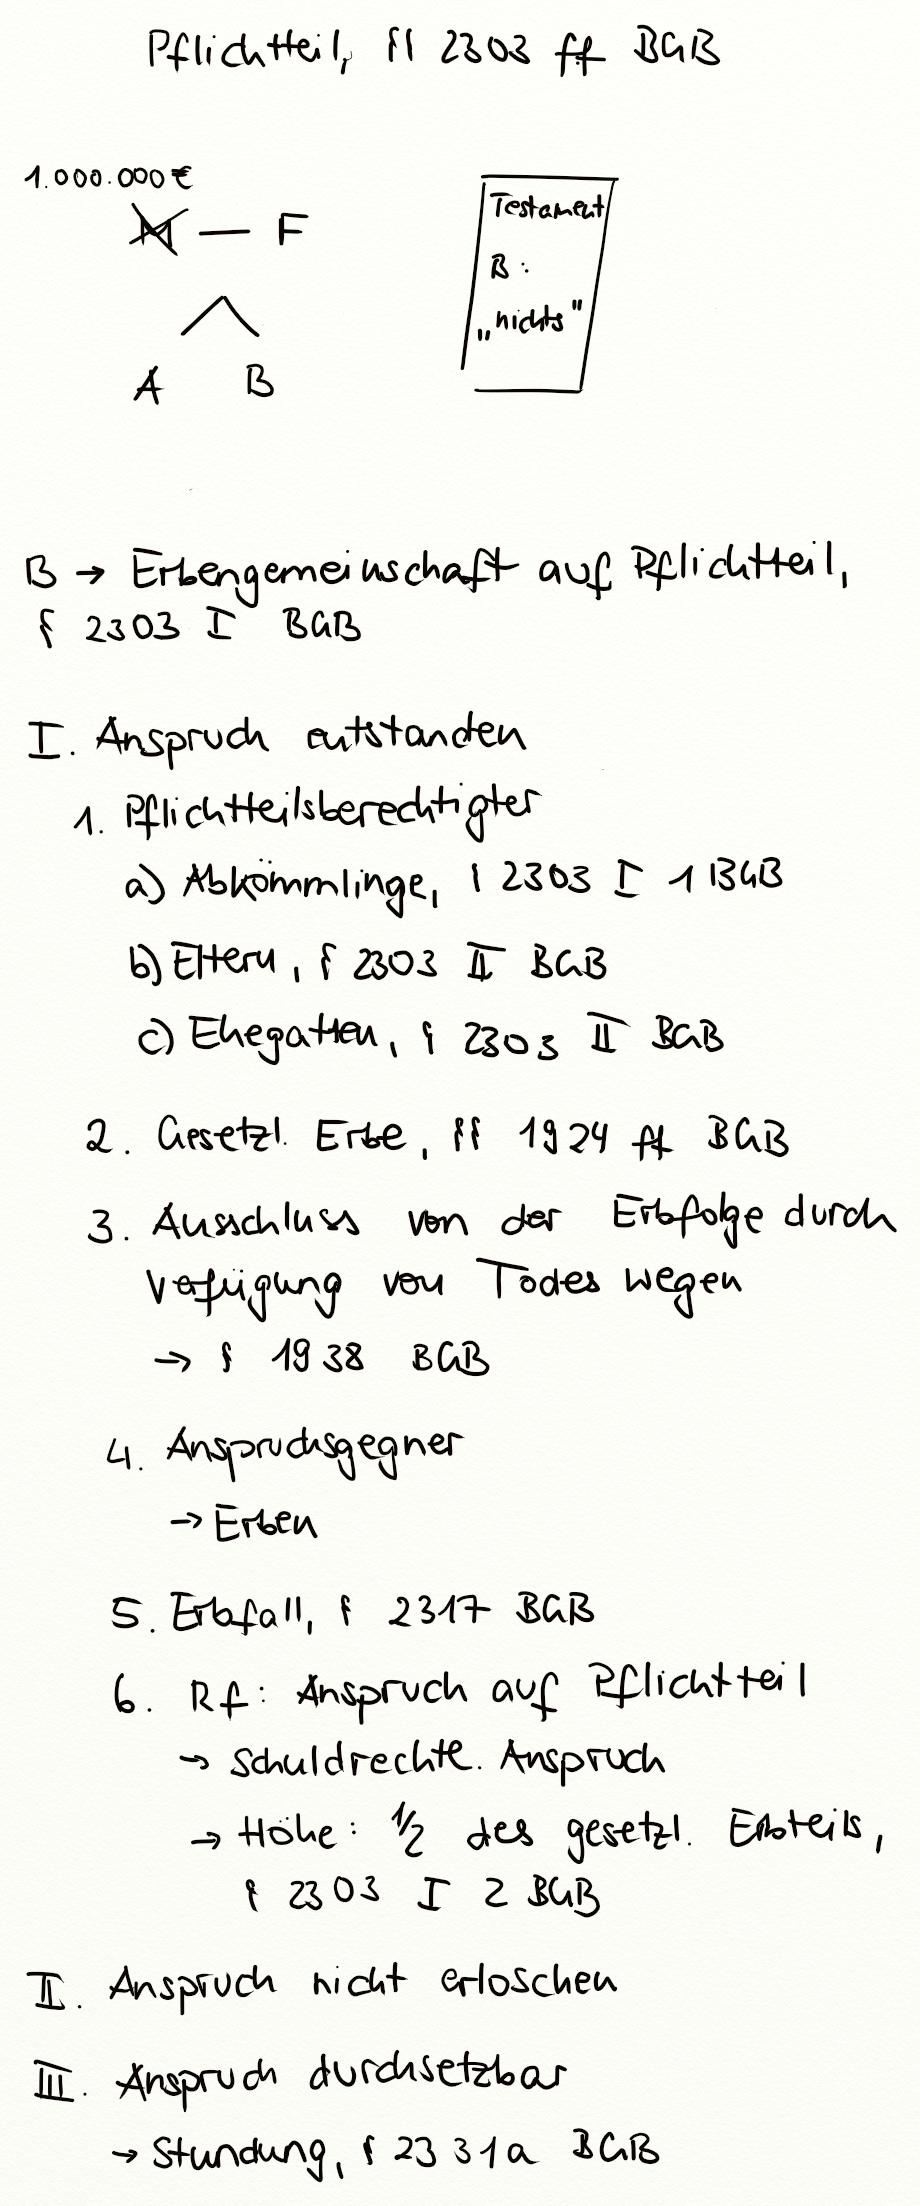 Pflichtteil, §§ 2303 ff BGB
1.000.000 €
M — F
A B
Testament
B:
„nichts"
B → Erbengemeinschaft auf Pflichtteil,
§ 2303 I BGB
I. Anspruch entstanden
1. Pflichtteilsberechtigter
a) Abkömmlinge, § 2303 I 1 BGB
b) Eltern, § 2303 II BGB
c) Ehegatten, § 2303 II BGB
2. Gesetzl. Erbe, §§ 1924 ff BGB
3. Ausschluss von der Erbfolge durch
Verfügung von Todes wegen
→ § 1938 BGB
4. Anspruchsgegner
→ Erben
5. Erbfall, § 2317 BGB
6. Rf: Anspruch auf Pflichtteil
→ Schuldrechtl. Anspruch
→ Höhe: 1/2 des gesetzl. Erbteils,
§ 2303 I 2 BGB
II. Anspruch nicht erloschen
III. Anspruch durchsetzbar
→ Stundung, § 2331a BGB